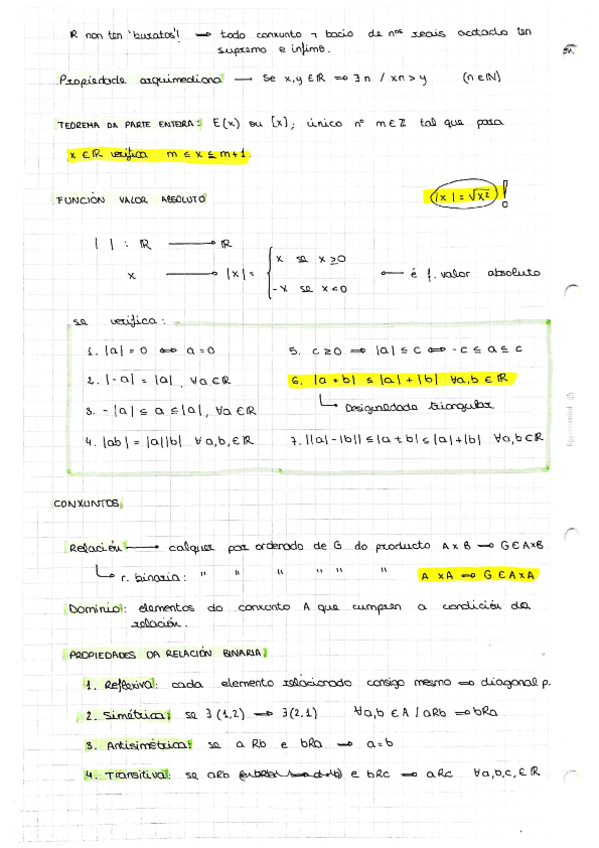 R non ten 'buratos'! → todo conxunto ¬ bacio de nos reais acotado ten
supremo e ínfimo.
Propiedade arquimediana — Se x,y ∈ R ⇒ ∃ n / xn > y (n ∈ N)
TEOREMA DA PARTE ENTEIRA: E(x) ou [x]; único nº m ∈ Z tal que para
x ∈ R verifica m ≤ x ≤ m+1
FUNCIÓN VALOR ABSOLUTO |x| = √x² !
| | : R → R
x → |x| = { x se x ≥ 0
-x se x < 0
← é f. valor absoluto
se verifica:
1. |a| = 0 ⇔ a = 0
2. |-a| = |a|, ∀a ∈ R
3. -|a| ≤ a ≤ |a|, ∀a ∈ R
4. |ab| = |a||b| ∀a,b, ∈ R
5. c ≥ 0 ⇒ |a| ≤ c ⇔ -c ≤ a ≤ c
6. |a + b| ≤ |a| + |b| ∀a,b ∈ R
↳ Desigualdade triangular
7. ||a| - |b|| ≤ |a ± b| ≤ |a| + |b| ∀a,b ∈ R
CONXUNTOS
Relación → calquer par ordenado de G do producto A x B ⇒ G ∈ A x B
↳ r. binaria: " " " " " " " A x A ⇒ G ∈ A x A
Dominio: elementos do conxunto A que cumpren a condición da
relación.
PROPIEDADES DA RELACIÓN BINARIA
1. Reflexiva: cada elemento relacionado consigo mesmo ⇒ diagonal p.
2. Simétrica: se ∃ (1,2) → ∃ (2,1) ∀a,b ∈ A / aRb ⇒ bRa
3. Antisimétrica: se a Rb e bRa → a=b
4. Transitiva: se aRb e bRc → aRc ∀a,b,c, ∈ R